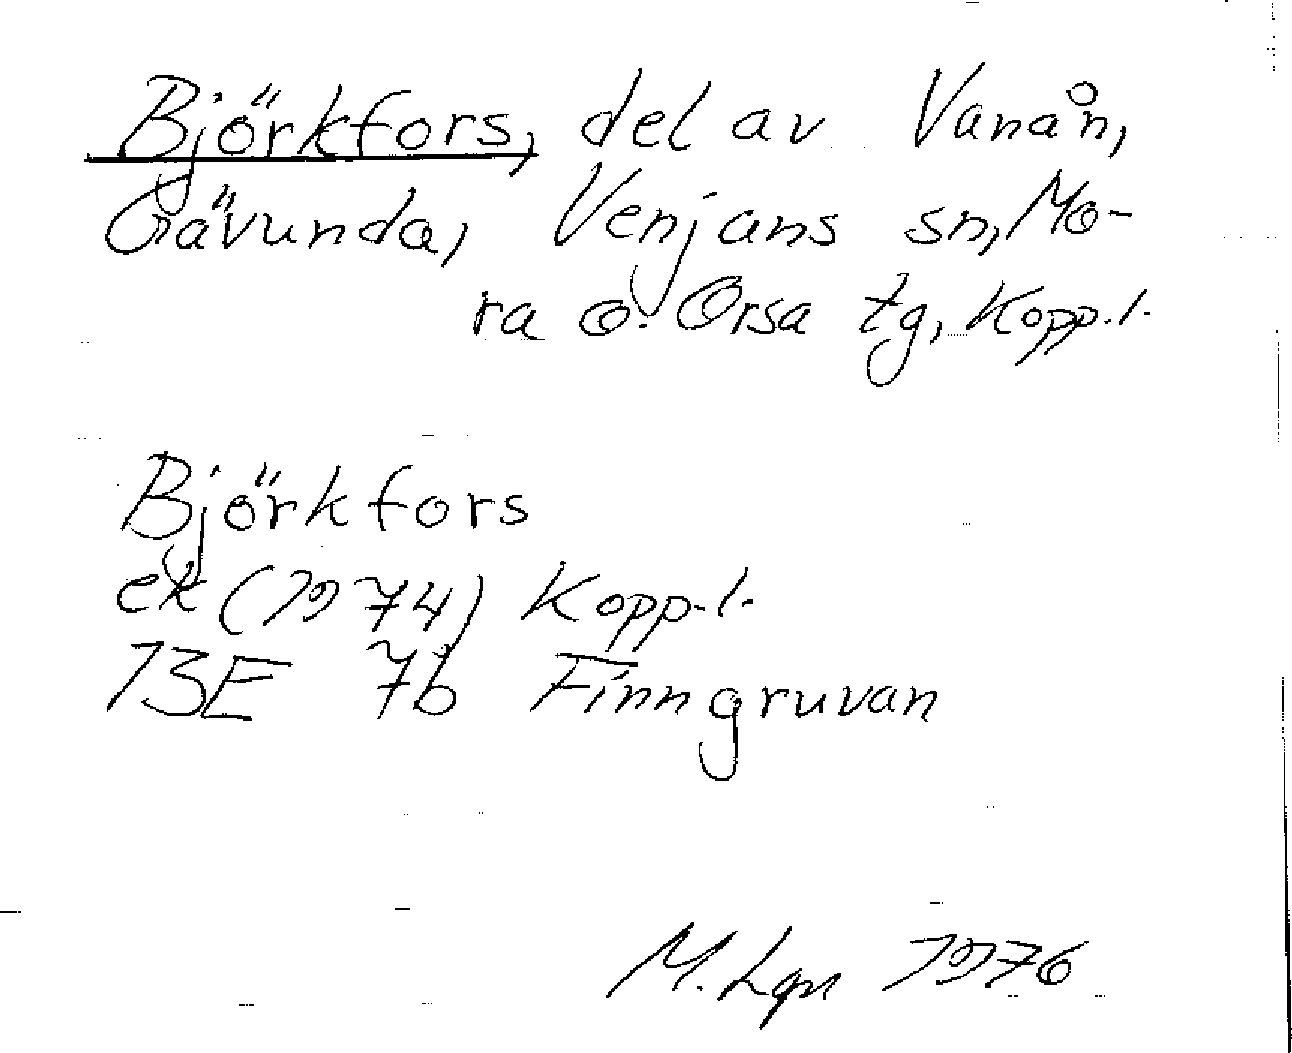 Björkfors, del av Vanån,
Gävunda, Venjans sn, Mo-
ra o. Orsa tg, Kopp.l.
Björkfors
ek (1974) Kopp.l.
13E 7b Finngruvan
M. Lgn 1976